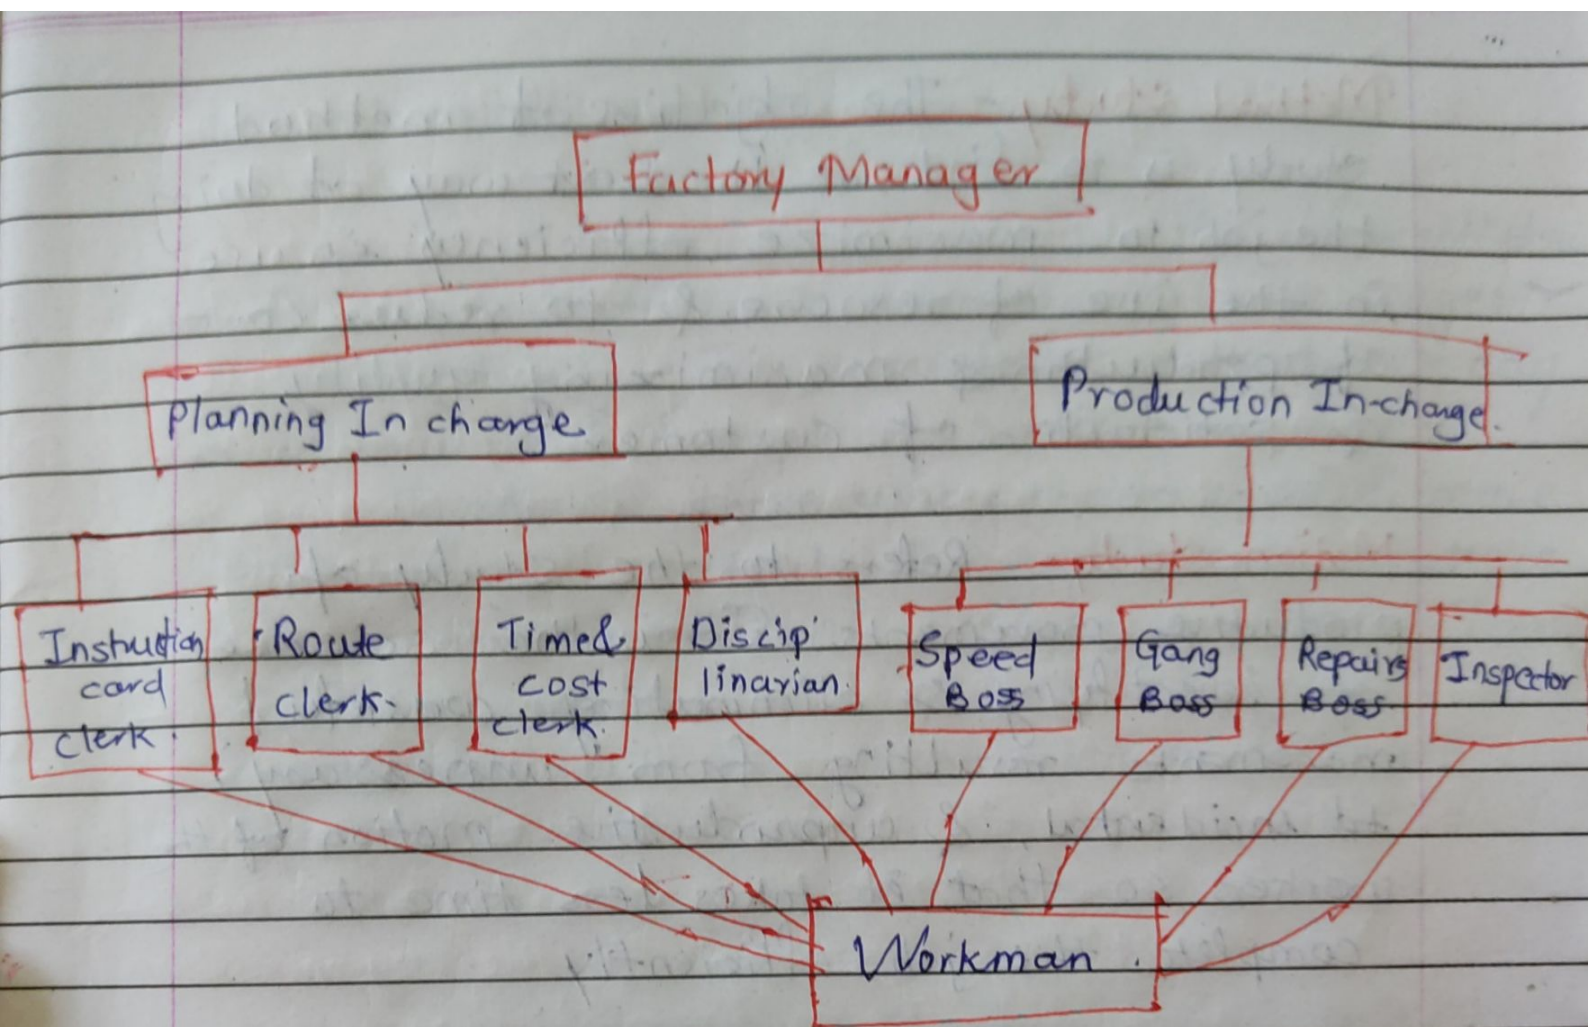 Factory Manager
Planning In charge
Production In-charge.
Instruction
card
clerk.
Route
clerk.
Time &
cost
clerk.
Discip
linarian.
Speed
Boss
Gang
Boss
Repairs
Boss
Inspector
Workman.